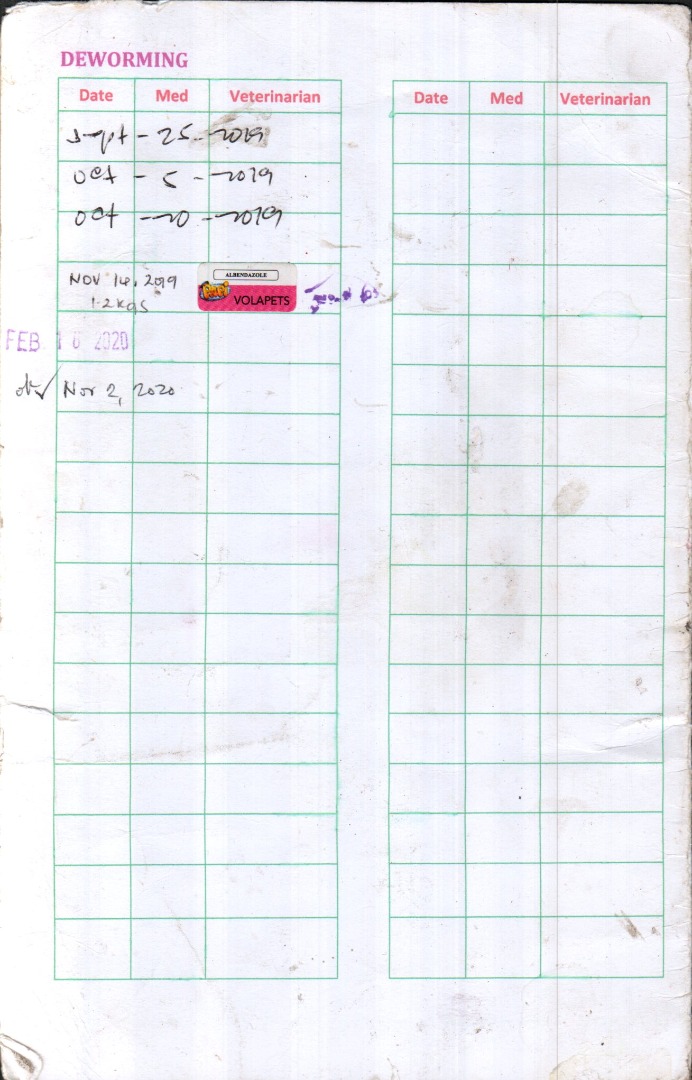 DEWORMING
Date Med Veterinarian
Date Med Veterinarian
Sept - 25 - 2019
Oct - 5 - 2019
Oct - 20 - 2019
NOV 14, 2019
1.2 kgs
ALBENDAZOLE
VOLAPETS
FEB 16 2020
Nov 2, 2020